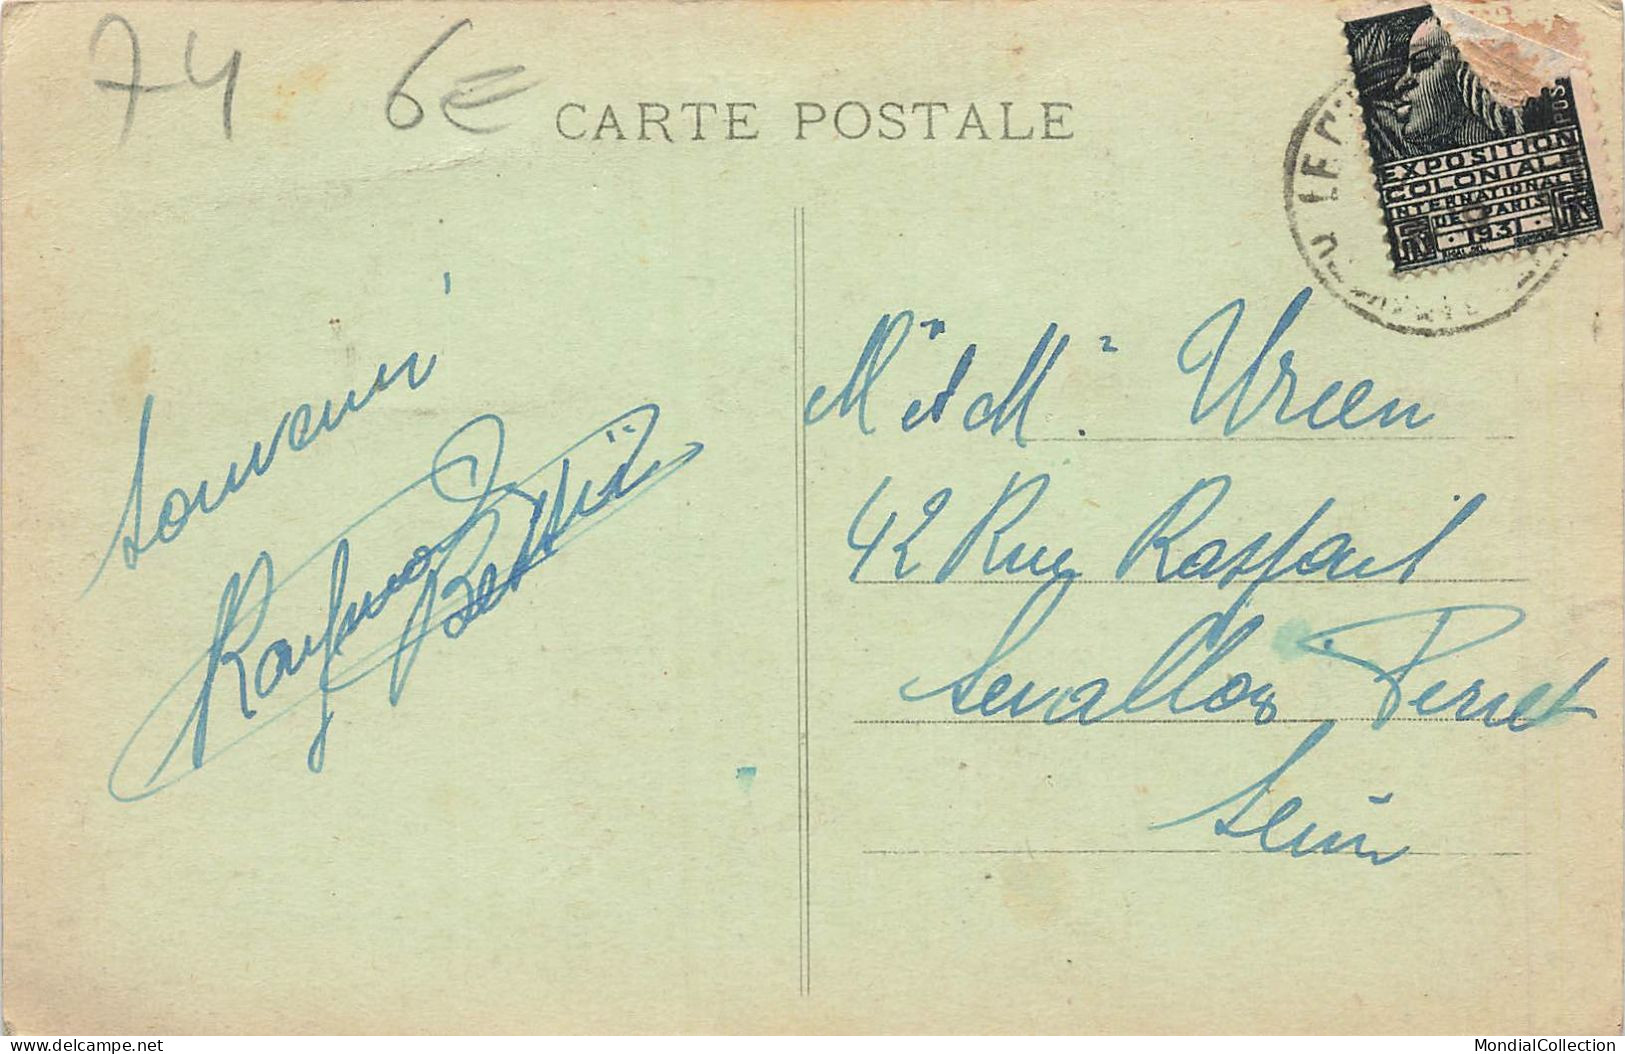 74 6€
CARTE POSTALE
POS
EXPOSITION
COLONIALE
INTERNATIONALE
DE PARIS
1931
Souvenir
Raymond
Mr et Mme Ureen
42 Rue Raspail
Levallois Perret
Seine
delcampe.net
MondialCollection